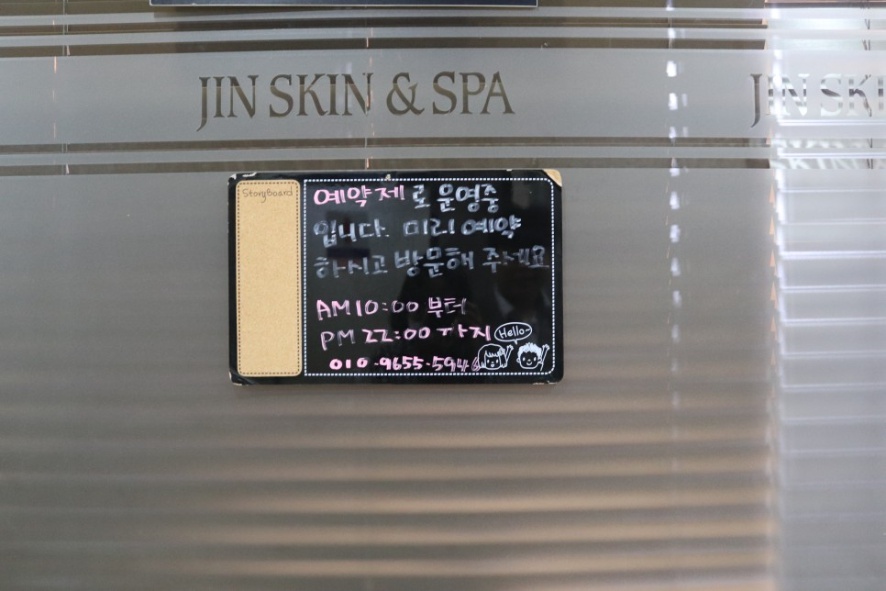 JIN SKIN & SPA
JIN SKI
StoryBoard
예약제로 운영중
입니다. 미리 예약
하시고 방문해 주세요
AM 10:00 부터
PM 22:00 까지
Hello~
010-9655-5946